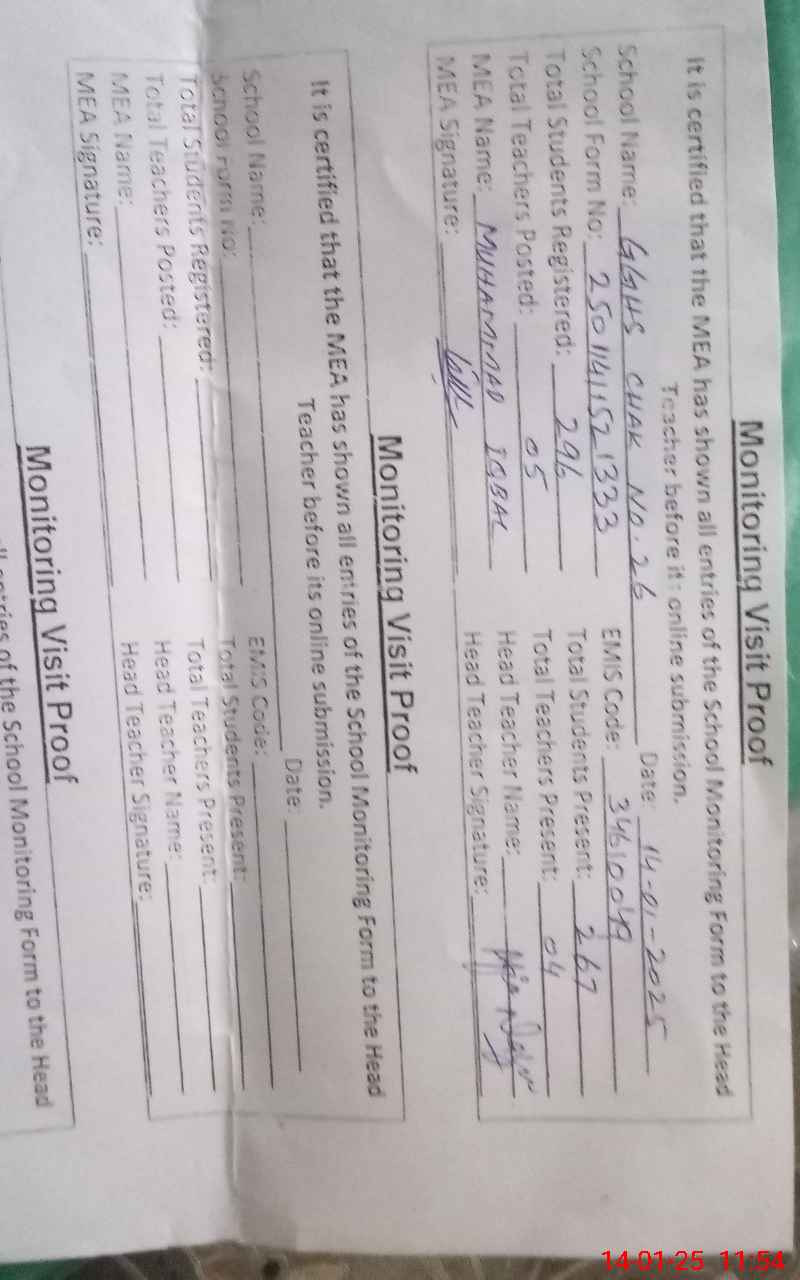 Monitoring Visit Proof
It is certified that the MEA has shown all entries of the School Monitoring Form to the Head
Teacher before its online submission.
Date: 14-01-2025
School Name: GGHS CHAK NO. 26
School Form No: 2501141521333 EMIS Code: 34610049
Total Students Registered: 296 Total Students Present: 267
Total Teachers Posted: 05 Total Teachers Present: 04
MEA Name: MUHAMMAD IQBAL Head Teacher Name:
MEA Signature: Head Teacher Signature:
Monitoring Visit Proof
It is certified that the MEA has shown all entries of the School Monitoring Form to the Head
Teacher before its online submission.
Date:
School Name:
School Form No: EMIS Code:
Total Students Registered: Total Students Present:
Total Teachers Posted: Total Teachers Present:
MEA Name: Head Teacher Name:
MEA Signature: Head Teacher Signature:
Monitoring Visit Proof
entries of the School Monitoring Form to the Head
14-01-25 11:54